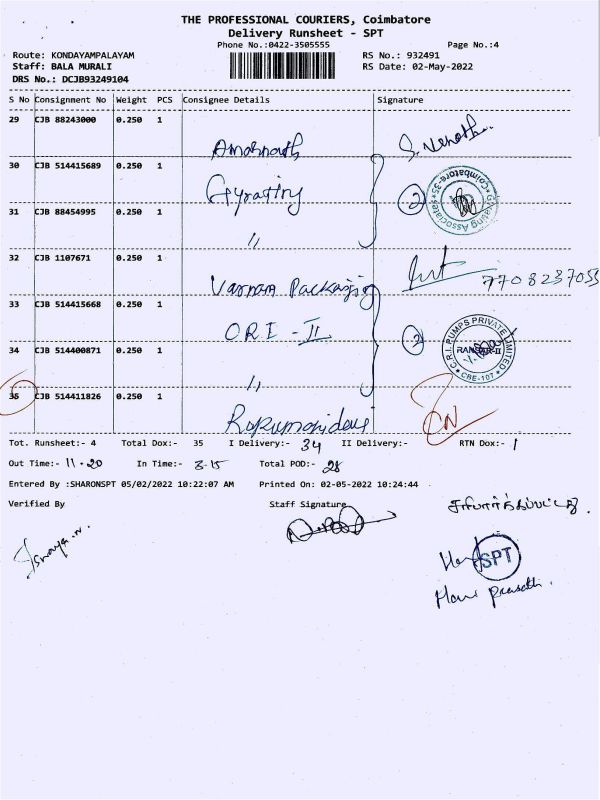 THE PROFESSIONAL COURIERS, Coimbatore
Delivery Runsheet - SPT
Phone No.:0422-3505555
Page No.:4
Route: KONDAYAMPALAYAM
RS No.: 932491
Staff: BALA MURALI
RS Date: 02-May-2022
DRS No.: DCJB93249104
S No Consignment No Weight PCS Consignee Details Signature
29 CJB 88243000 0.250 1
30 CJB 514415689 0.250 1 Gyrating (2)
31 CJB 88454995 0.250 1 〃
32 CJB 1107671 0.250 1 Varnam Packaging 7708237055
33 CJB 514415668 0.250 1 CRI - II (2)
34 CJB 514400871 0.250 1 〃
C.R.I. PUMPS PRIVATE LIMITED
CBE-107
35 CJB 514411826 0.250 1
Tot. Runsheet:- 4 Total Dox:- 35 I Delivery:- 34 II Delivery:- RTN Dox:- 1
Out Time:- 11.20 In Time:- 3.15 Total POD:- 28
Entered By :SHARONSPT 05/02/2022 10:22:07 AM Printed On: 02-05-2022 10:24:44
Verified By Staff Signature
சரிபார்க்கப்பட்டது.
SPT